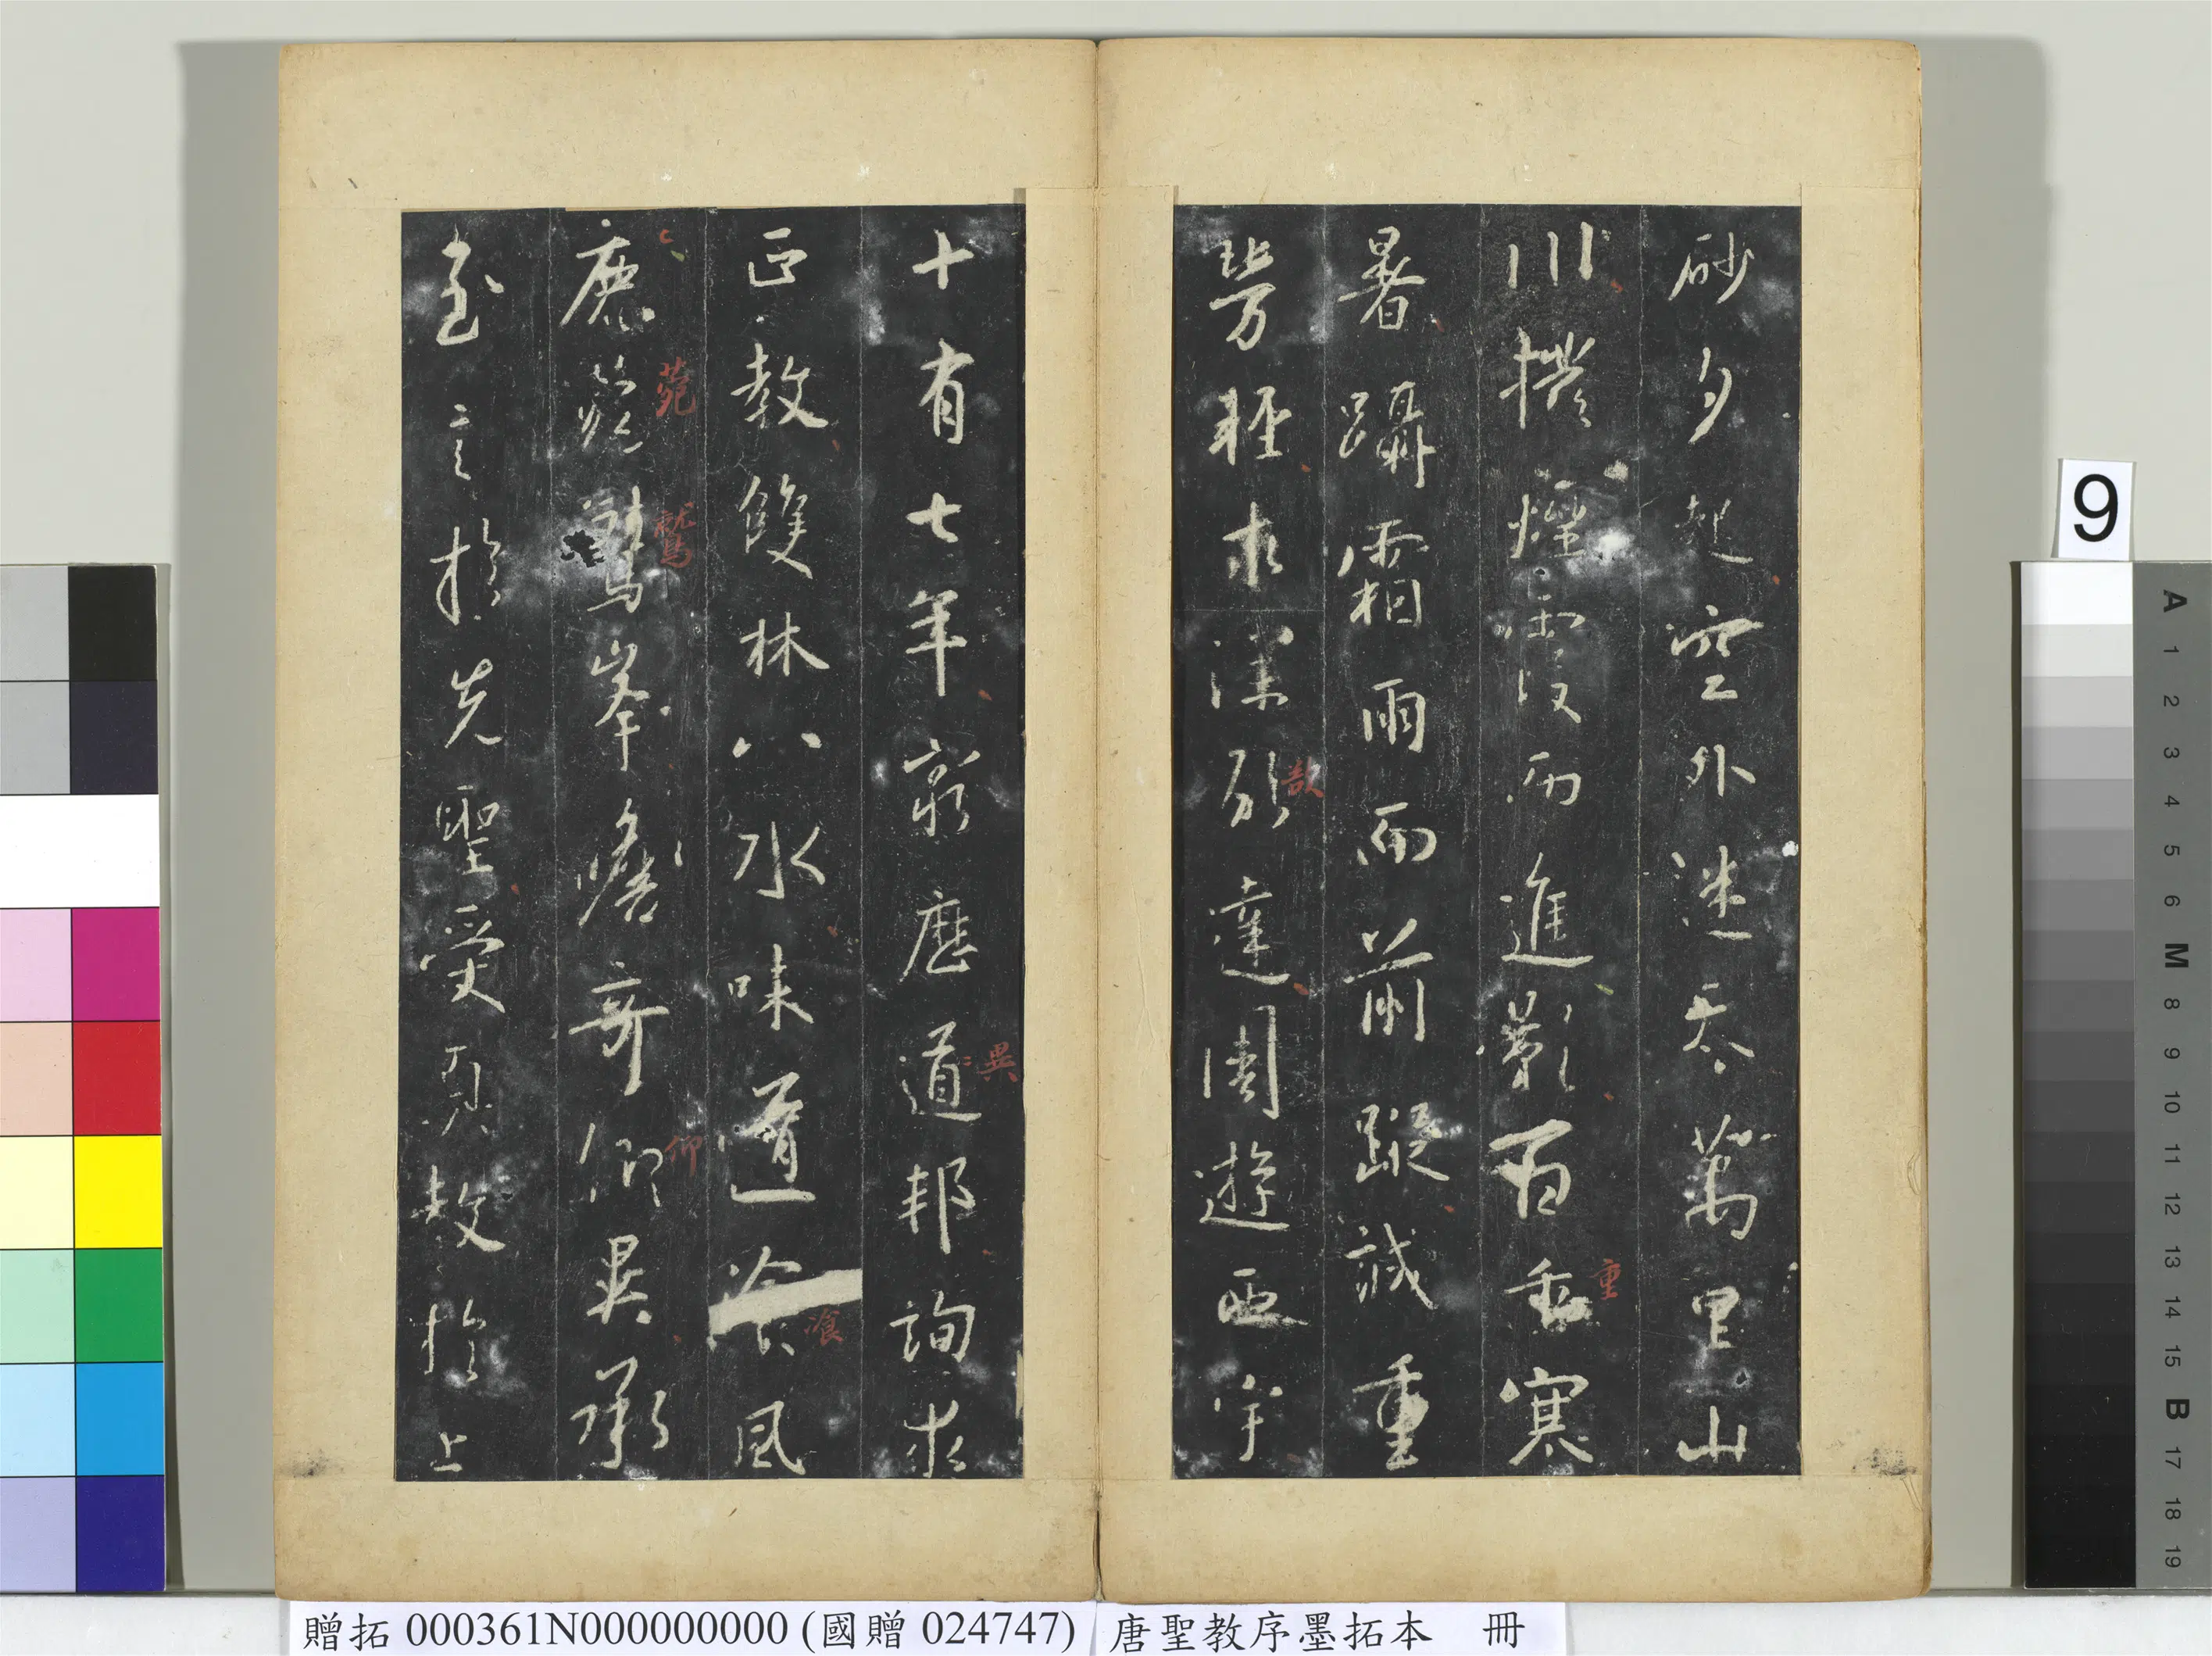 砂夕起空外迷天萬里山
川撥煙霞而進影百重寒
重
暑躡霜雨而前蹤誠重
勞輕求深願達周遊西宇
十有七年窮歷道邦詢求
異
正教雙林八水味道飡風
飡
鹿菀鷲峯瞻奇仰異承
菀
鷲
仰
至言於先聖受真教於上
9
A 1 2 3 4 5 6 M 8 9 10 11 12 13 14 15 B 17 18 19
贈拓 000361N000000000 (國贈 024747)
唐聖教序墨拓本 冊